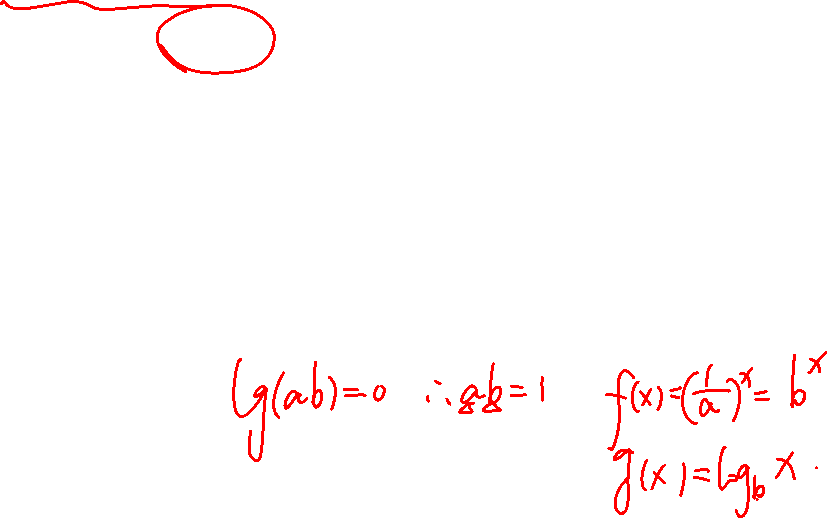 lg(ab)=0 ∴ab=1 f(x)=(1/a)^x=b^x
g(x)=log_b x.